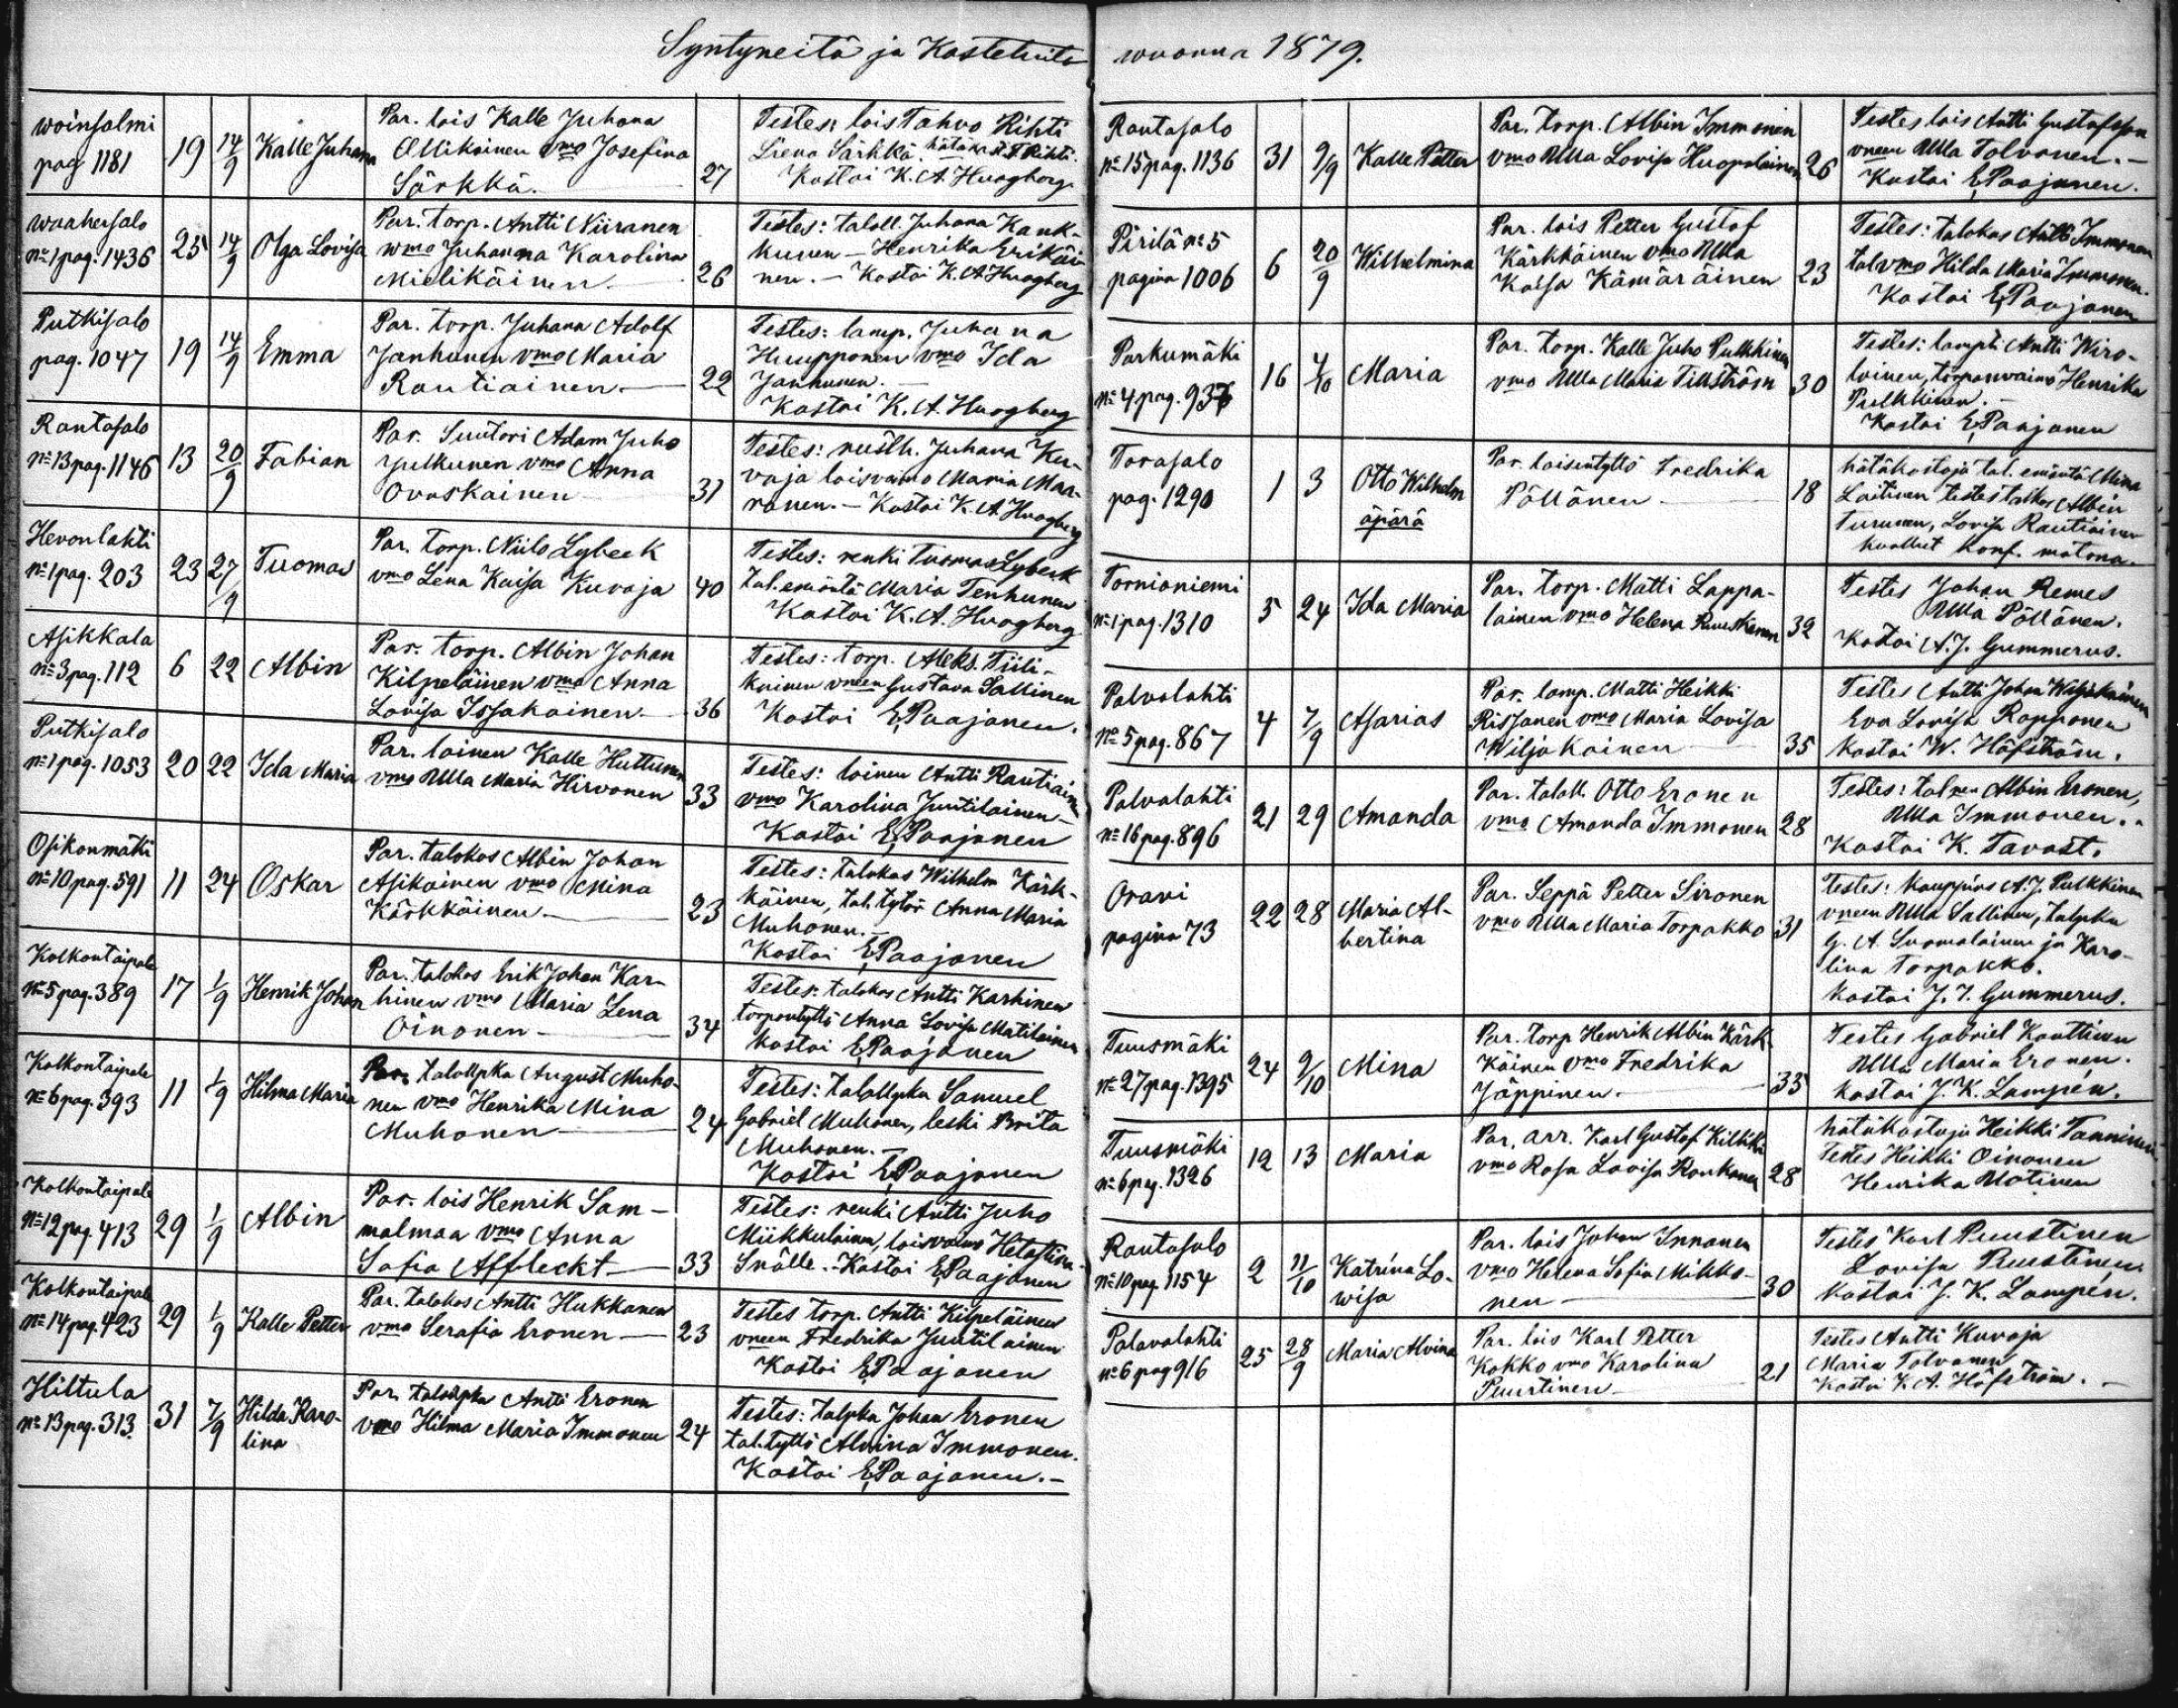 Syntyneitä ja Kastetuita wuonna 1879.
woinsalmi
pag 1181
19
14/9
Kalle Juhana
Par. lois Kalle Juhana
Ollikainen vmo Josefina
Särkkä.
27
Testes: lois Tahvo Rihti
Liena Särkkä. hätäka. A. F. Rihti.
Kastoi K. A. Hvagberg
waahersalo
No 1 pag. 1436
25
14/9
Olga Lovisa
Par. torp. Antti Niiranen
wmo Juhanna Karolina
Mielikäinen.
26
Testes: taloll. Juhana Kank-
kunen – Henrika Erikäi
nen. – Kastoi K. A. Hvagberg
Putkisalo
pag. 1047
19
14/9
Emma
Par. torp. Juhana Adolf
Janhunen vmo Maria
Rautiainen.
22
Testes: lamp. Juhana
Huupponen vmo Ida
Janhunen.
Kastoi K. A. Hvagberg
Rantasalo
No 13 pag. 1146
13
20/9
Fabian
Par. Suutori Adam Juho
Julkunen vmo Anna
Ovaskainen
31
Testes: rustl. Juhana Ku-
vaja loisvaimo Maria Mar-
ranen. – Kastoi K. A. Hvagberg
Hevonlahti
No 1 pag. 203
23
27/9
Tuomas
Par. torp. Niilo Lybeck
vmo Lena Kaisa Kuvaja
40
Testes: renki Tuomas Lybeck
tal. emäntä Maria Tenhunen
Kastoi K. A. Hvagberg
Asikkala
No 3 pag. 112
6
22
Albin
Par. torp. Albin Johan
Kilpeläinen vmo Anna
Lovisa Issakainen.
36
Testes: torp. Aleks. Tiili-
kainen vneen Gustava Sallinen
Kastoi E. Paajanen.
Putkisalo
No 1 pag. 1053
20
22
Ida Maria
Par. loinen Kalle Huttunen
vmo Ulla Maria Hirvonen
33
Testes: loinen Antti Rautiainen
vmo Karolina Juutilainen –
Kastoi E. Paajanen
Osikonmäki
No 10 pag. 591
11
24
Oskar
Par. talokas Albin Johan
Asikainen vmo Mina
Kärkkäinen.
23
Testes: talokas Wilhelm Kärk-
käinen, tal. tytär Anna Maria
Muhonen. –
Kastoi E. Paajanen
Kolkontaipale
No 5 pag. 389
17
1/9
Henrik Johan
Par. talokas Erik Johan Kar-
hinen vmo Maria Lena
Oinonen –
34
Testes: talokas Antti Karhinen
torpantyttö Anna Lovisa Matilainen
Kastoi E. Paajanen
Kolkontaipale
No 6 pag. 393
11
1/9
Hilma Maria
Par. talollpka August Muho-
nen vmo Henrika Mina
Muhonen
24
Testes: talollpka Samuel
Gabriel Muhonen, leski Brita
Muhonen. –
Kastoi E. Paajanen
Kolkontaipale
No 12 pag. 413
29
1/9
Albin
Par. lois Henrik Sam-
malmaa vmo Anna
Sofia Affleckt
33
Testes: renki Antti Juho
Miikkulainen, loisvaimo
Snälle. – Kastoi E. Paajanen
Kolkontaipale
No 14 pag. 423
29
1/9
Kalle Petter
Par. talokas Antti Hukkanen
vmo Serafia Eronen
23
Testes torp. Antti Kilpeläinen
vneen Fredrika Juutilainen
Kastoi E. Paajanen
Hiltula
No 13 pag. 313.
31
7/9
Hilda Karo-
lina
Par. talollpka Antti Eronen
vmo Hilma Maria Immonen
24
Testes: talpka Johan Eronen
tal. tyttö Alvina Immonen.
Kastoi E. Paajanen. –
Rantasalo
No 15 pag. 1136
31
9/9
Kalle Petter
Par. torp. Albin Immonen
vmo Ulla Lovisa Huopolainen
26
Testes lois Antti Gustafsson
vneen Ulla Tolvanen. –
Kastoi E. Paajanen.
Pirilä No 5
pagina 1006
6
20/9
Wilhelmina
Par. lois Petter Gustof
Kärkkäinen vmo Ulla
Kaisa Kämäräinen
23
Testes: talokas Antti Immonen
talvmo Hilda Maria Immonen.
Kastoi E. Paajanen
Parkumäki
No 4 pag. 937
16
4/10
Maria
Par. torp. Kalle Juho Pulkkinen
vmo Ulla Maria Tillström
30
Testes: lampti Antti Wiro-
lainen, torpanvaimo Henrika
Pulkkinen. –
Kastoi E. Paajanen
Torasalo
pag. 1290
1
3
Otto Wilhelm
äpärä
Par. loisentyttö Fredrika
Pöllänen
18
hätäkastaja tal. emäntä Mina
Laitinen testes talkas Albin
Turunen, Lovisa Rautiainen
kuollut konf. matona.
Tornioniemi
No 1 pag. 1310
5
24
Ida Maria
Par. torp. Matti Lappa-
lainen vmo Helena Ruuskanen
32
Testes Johan Remes
Ulla Pöllänen.
Kastoi A. J. Gummerus.
Palvalahti
No 5 pag. 867
4
7/9
Asarias
Par. lamp. Matti Heikki
Rissanen vmo Maria Lovisa
Wiljakainen
35
Testes Antti Johan Wiljakainen
Eva Lovisa Rapponen
Kastoi W. Höfström.
Palvalahti
No 16 pag. 896
21
29
Amanda
Par. taloll. Otto Eronen
vmo Amanda Immonen
28
Testes: talnen Albin Eronen,
Ulla Immonen.
Kastoi K. Tavast.
Oravi
pagina 73
22
28
Maria Al-
bertina
Par. Seppä Petter Sironen
vmo Ulla Maria Torpakko
31
Testes: kauppias A. J. Pulkkinen
vneen Ulla Sallinen, talpka
G. A. Suomalainen ja Karo-
lina Torpakko.
Kastoi J. J. Gummerus.
Tuusmäki
No 27 pag. 1395
24
9/10
Mina
Par. torp Henrik Albin Kärk-
käinen vmo Fredrika
Jäppinen.
33
Testes Gabriel Kauttinen
Ulla Maria Eronen.
Kastoi J. K. Lampén.
Tuusmäki
No 6 pag. 1326
12
13
Maria
Par. arr. Karl Gustof Kilkki
vmo Rosa Lovisa Ronkanen
28
hätäkastaja Heikki Tanninen
Testes Heikki Oinonen
Henrika Uotinen
Rantasalo
No 10 pag. 1154
2
11/10
Katrina Lo-
wisa
Par. lois Johan Innanen
vmo Helena Sofia Mikko-
nen
30
Testes Karl Puustinen
Lovisa Puustinen.
Kastoi J. K. Lampén.
Palavalahti
No 6 pag 916
25
28/9
Maria Alvina
Par. lois Karl Petter
Kokko vmo Karolina
Puurtinen
21
Testes Antti Kuvaja
Maria Tolvanen
Kastoi K. A. Höfström. –